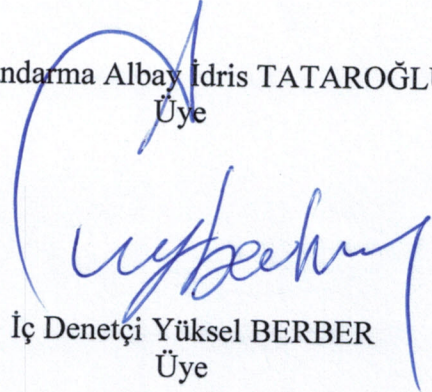 ndarma Albay İdris TATAROĞLU
Üye
İç Denetçi Yüksel BERBER
Üye